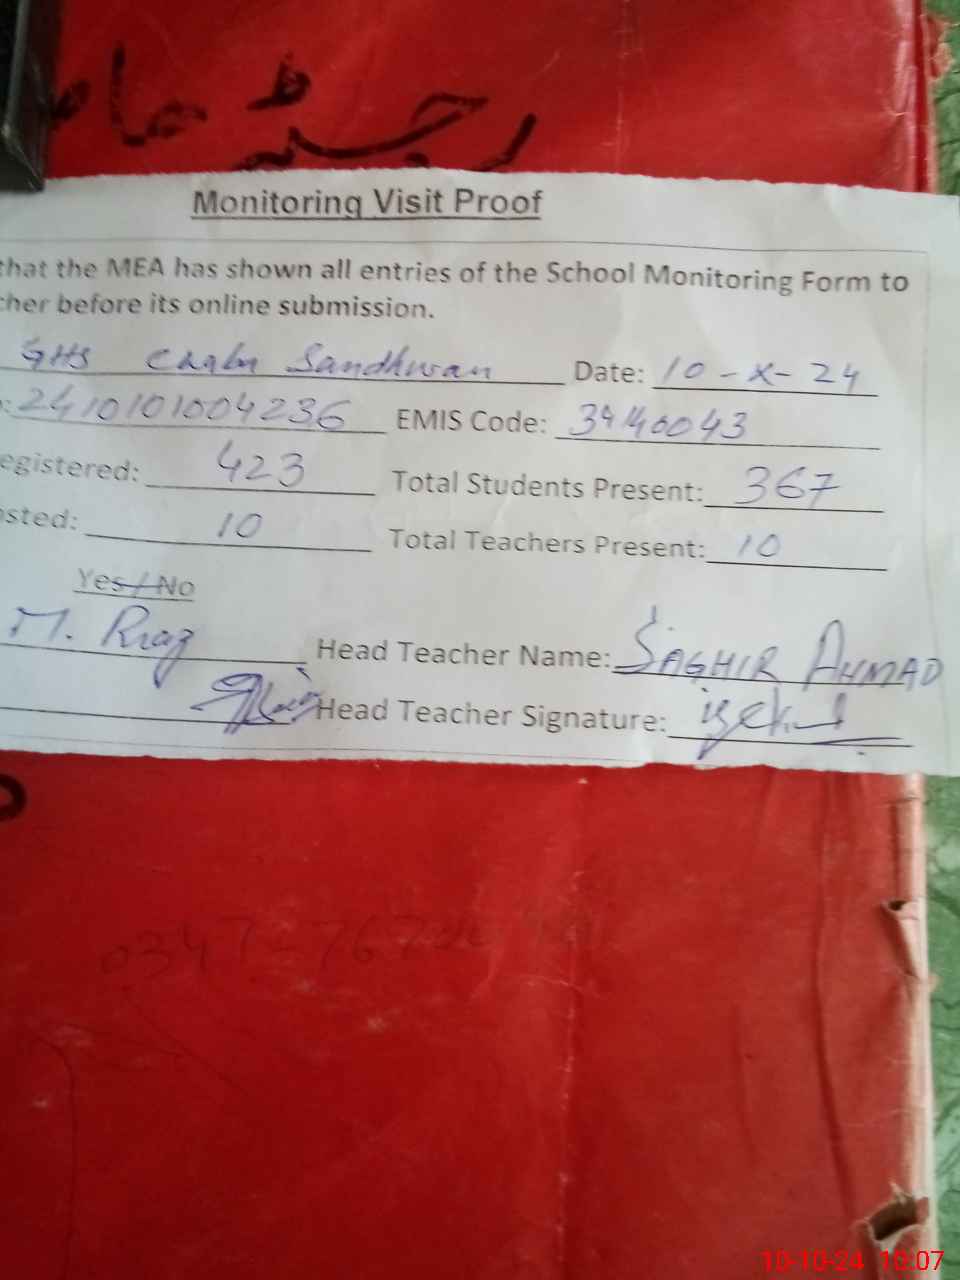 رجسٹر
Monitoring Visit Proof
that the MEA has shown all entries of the School Monitoring Form to
cher before its online submission.
GHS Chabu Sandhwan Date: 10-X-24
2410101004236 EMIS Code: 34140043
egistered: 423 Total Students Present: 367
osted: 10 Total Teachers Present: 10
Yes/No
M. Riaz Head Teacher Name: SAGHIR AHMAD
Head Teacher Signature:
10-10-24 10:07